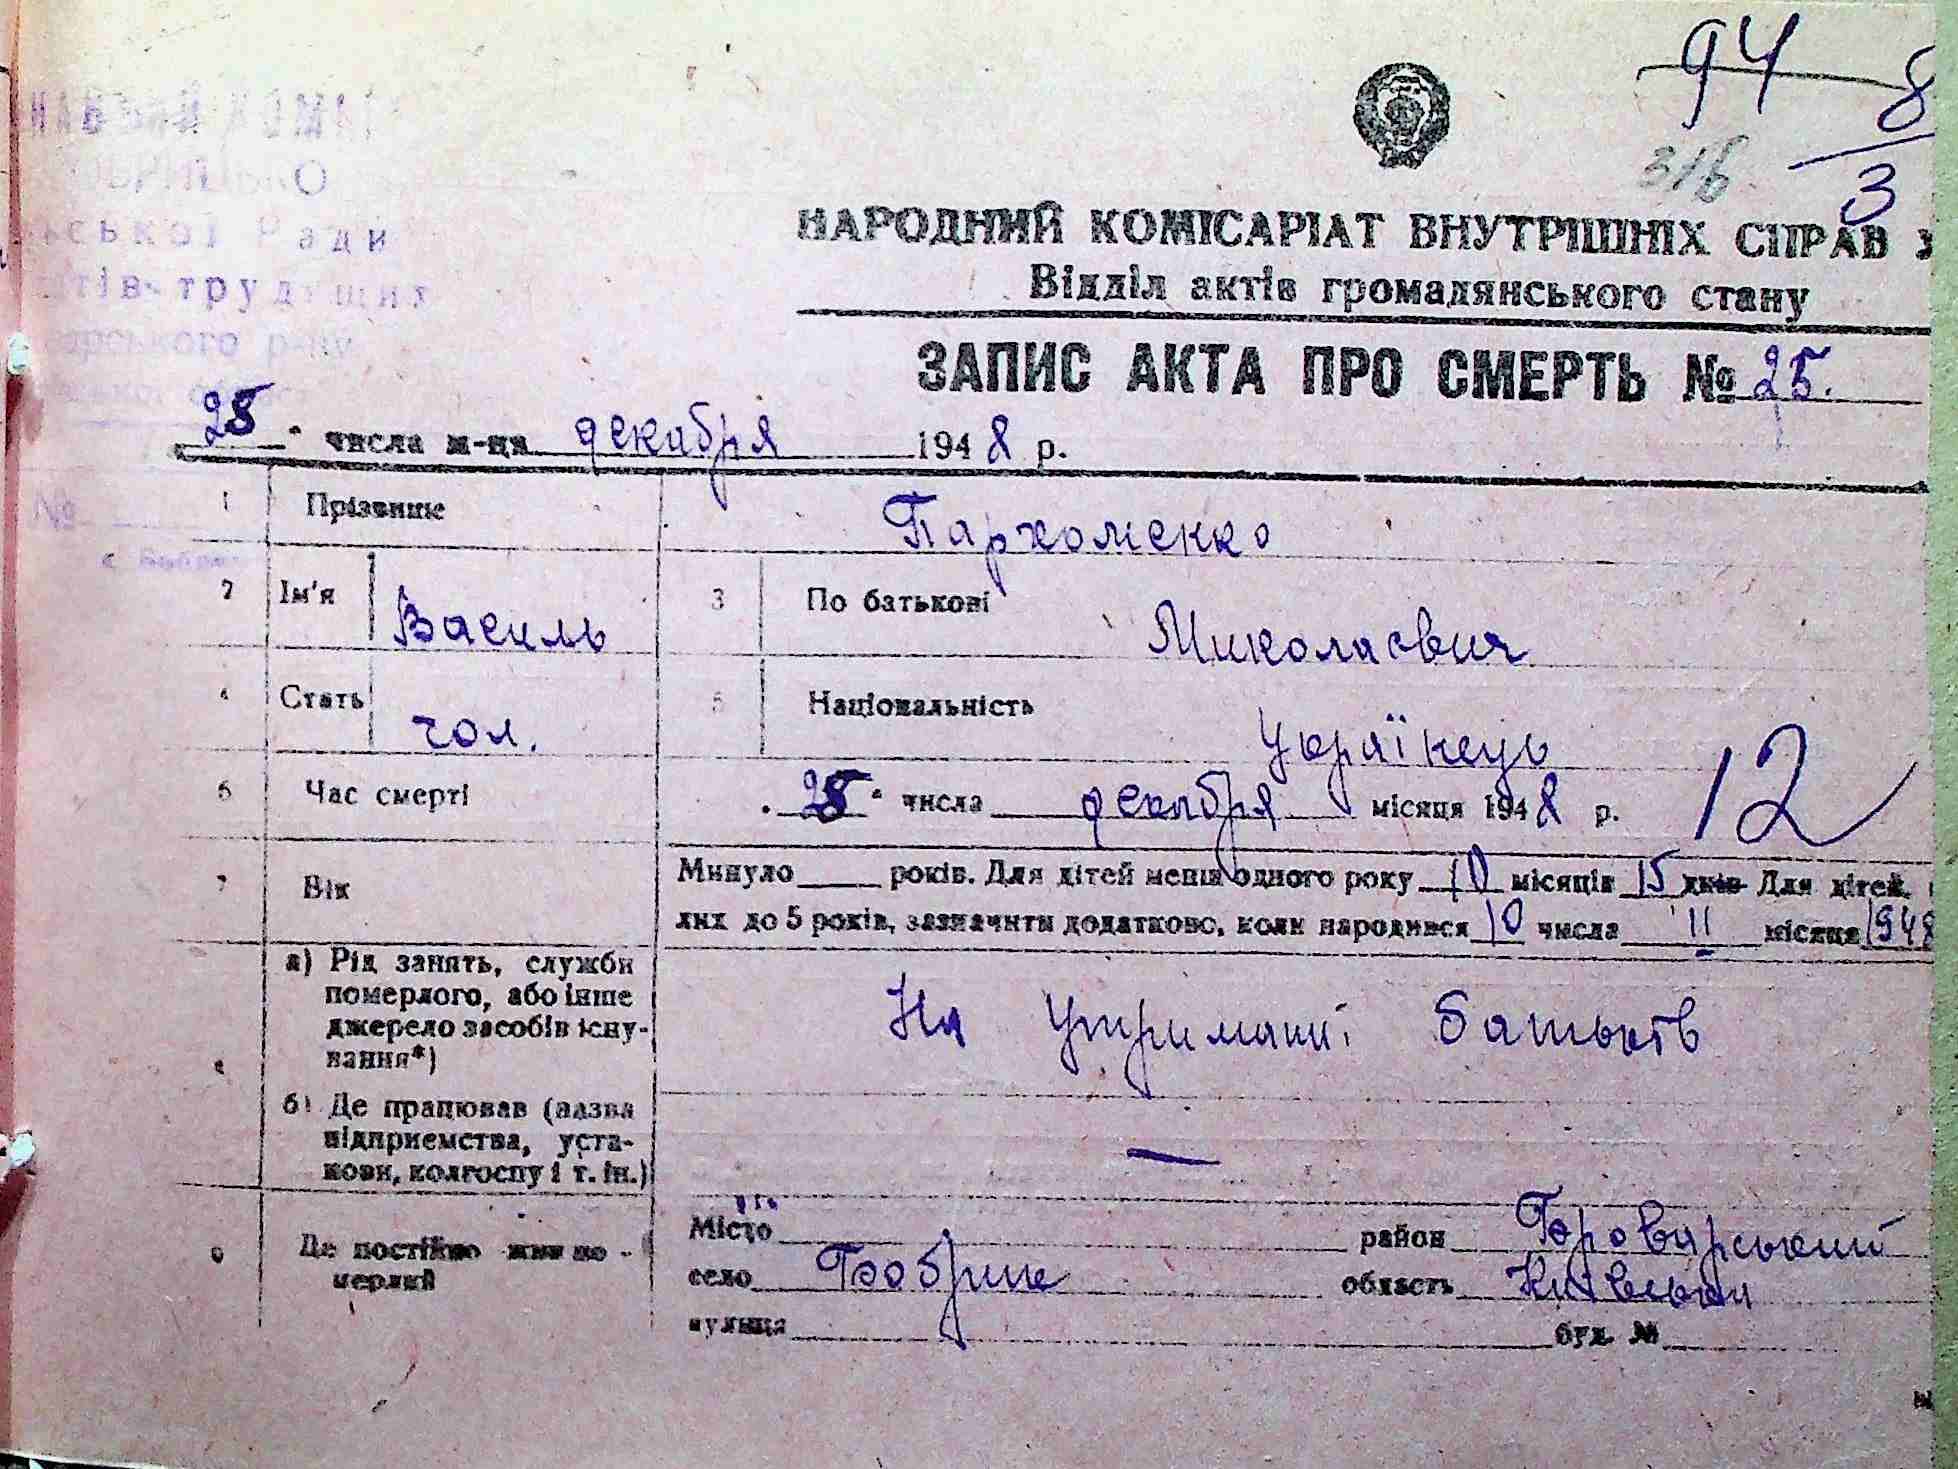 94 8
31б 3
НАРОДНИЙ КОМІСАРІАТ ВНУТРІШНІХ СПРАВ
Відділ актів громадянського стану
ЗАПИС АКТА ПРО СМЕРТЬ № 25.
ської Ради
тів-трудящих
25 " числа м-ця декабря 1948 р.
№
1 Прізвище Пархоменко
2 Ім'я Василь 3 По батькові Миколаєвич
4 Стать чол. 5 Національність Українець
6 Час смерті " 25 " числа декабря місяця 1948 р. 12
7 Вік Минуло років. Для дітей менш одного року 10 місяців 15 днів Для дітей,
лих до 5 років, зазначити додатково, коли народився 10 числа II місяця 1948
а) Рід занять, служби
померлого, або інше
джерело засобів існу-
вання*) На утриманні батьків
б) Де працював (назва
підприємства, уста-
кови, колгоспу і т. ін.) —
9 Де постійно жив по-
мерлий
Місто район Броварський
село Бобрик область Київська
вулиця буд. №